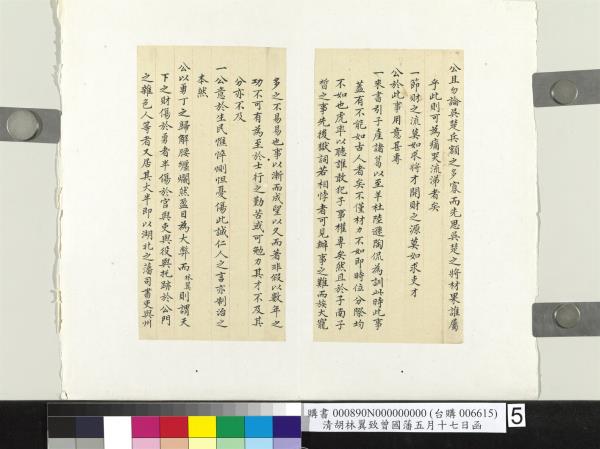 公且勿論吳楚兵額之多寡而先思吳楚之將材果誰屬
乎此則可為痛哭流涕者矣
一節財之流莫如求將才開財之源莫如求吏才
公於此事用意甚專
一來書引子產諸葛以至羊杜陸遜陶侃為訓此時此事
蓋有不能如古人者矣不僅材力不如即時位分際均
不如也虎率以聽誰敢犯子事權專矣然且於子南子
皙之事先後獄詞若相悖者可見辦事之難而族大寵
多之不易易也事以漸而成望以久而著非假以數年之
功不可有為至於士行之勤苦或可勉力其才不及其
分亦不及
一公意於生民惟悴惻怛憂傷此誠仁人之言亦制治之
本然
公以勇丁之歸解腰纏爛然盈目為大弊而林翼則謂天
下之財傷於勇者半傷於官與吏與役與托跡於公門
之雜色人等者又居其大半即以湖北之藩司書吏與州
購書 000890N000000000 (台購 006615)
清胡林翼致曾國藩五月十七日函
5